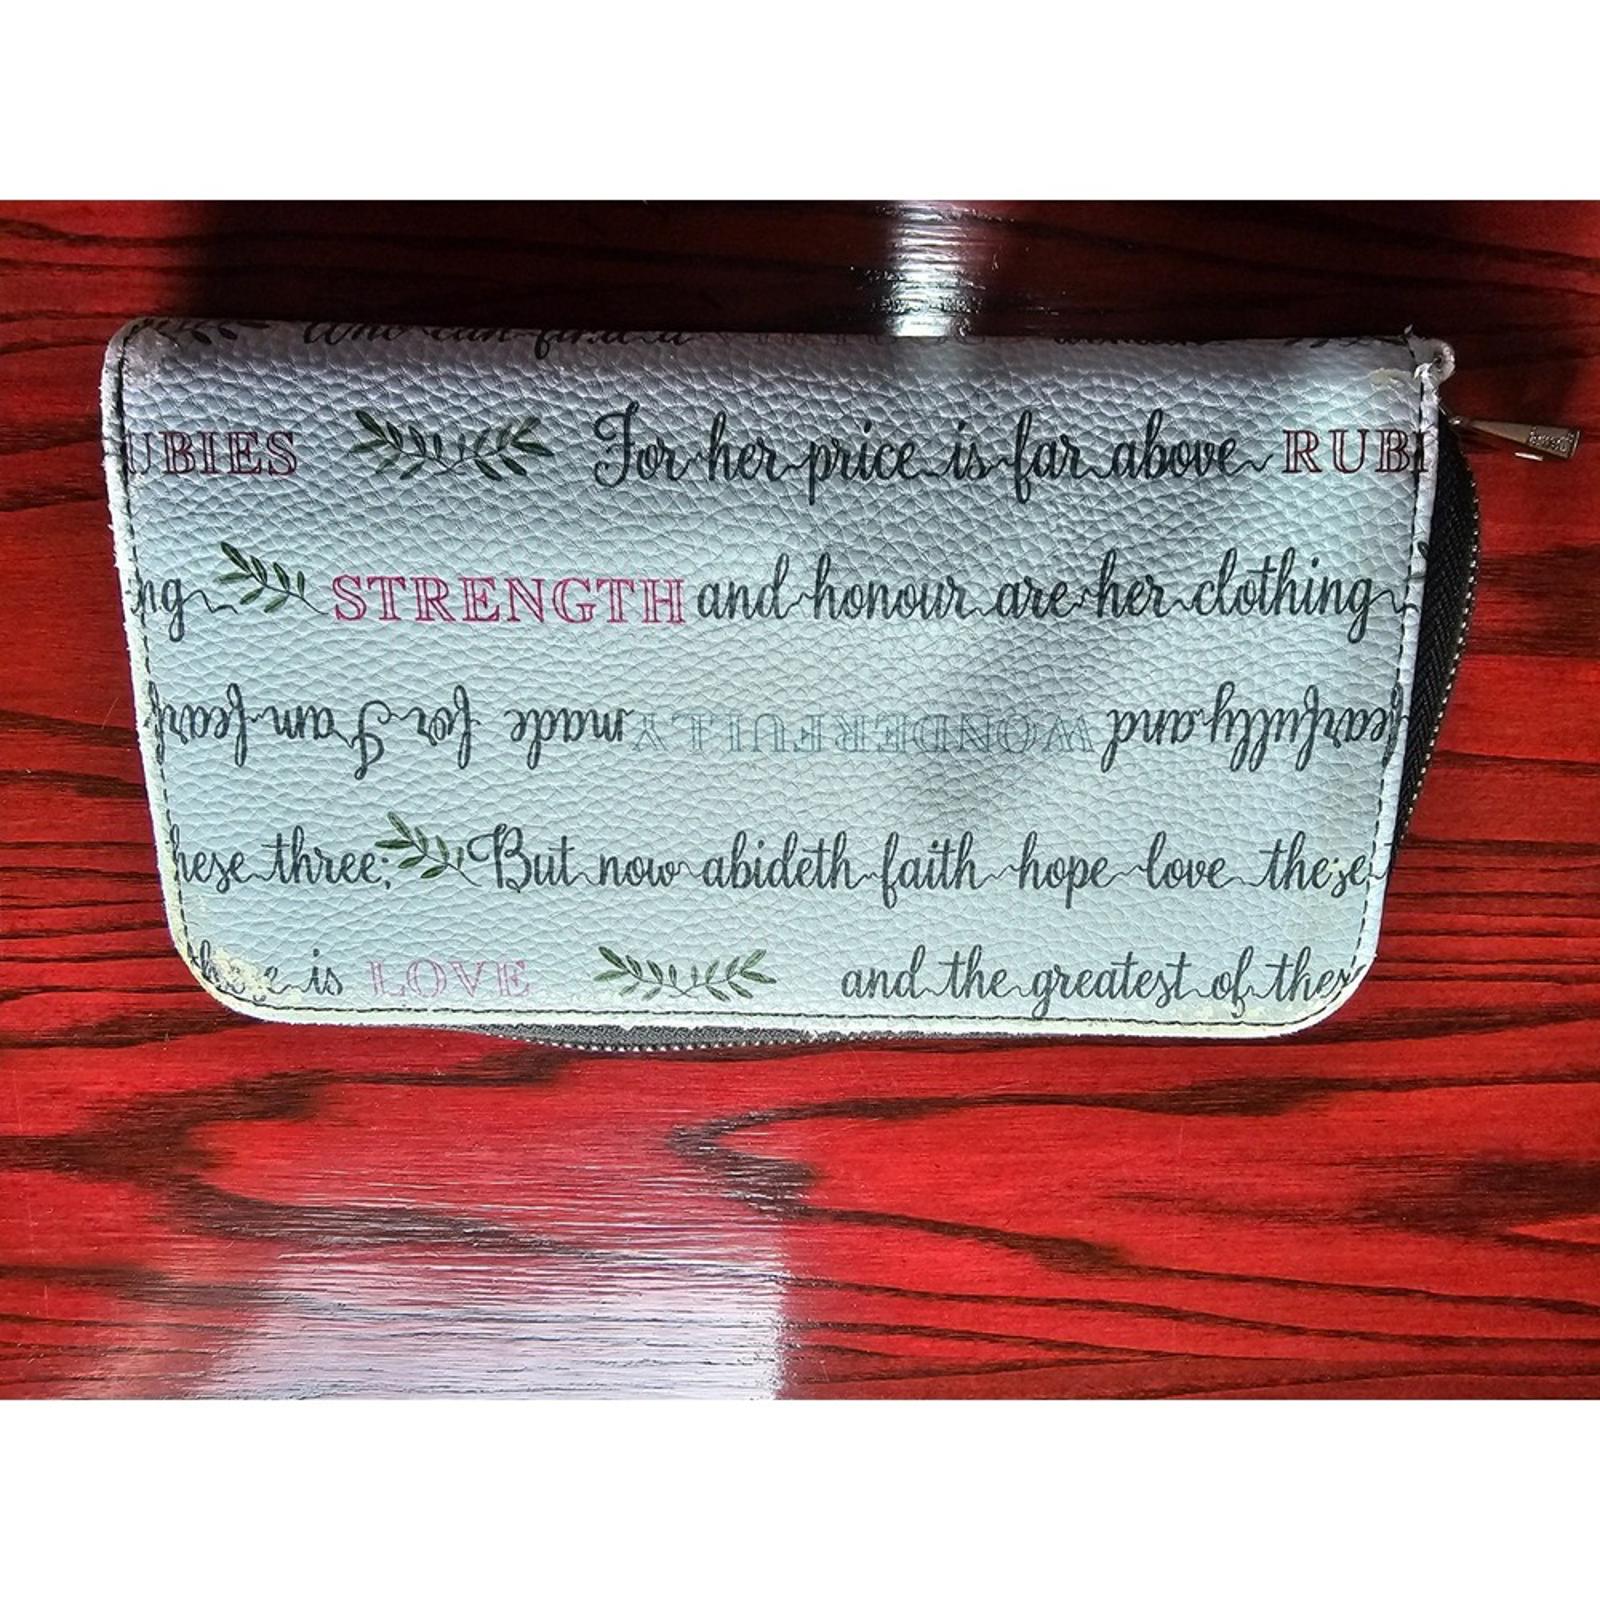 Who can find a
UBIES For her price is far above RUBI
ng STRENGTH and honour are her clothing
fearfully and WONDERFULLY made for I am fearf
hese three; But now abideth faith hope love these
these is LOVE and the greatest of thes